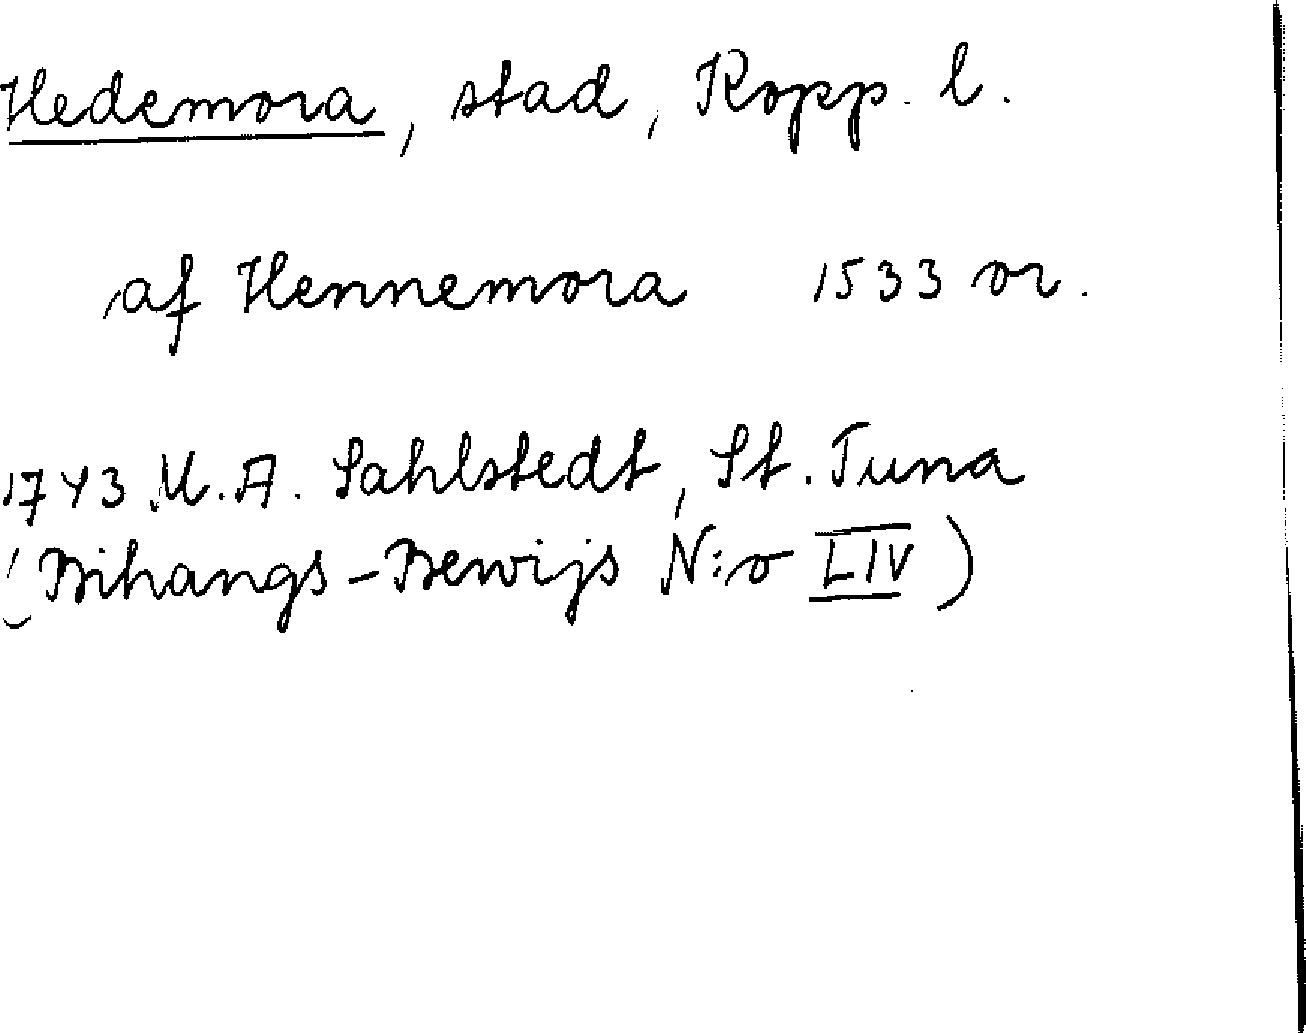 Hedemora, stad, Kopp. l.
af Hennemora 1533 or.
1743 M. A. Sahlstedt, St. Tuna
(Bihangs-Bewijs N:o LIV)